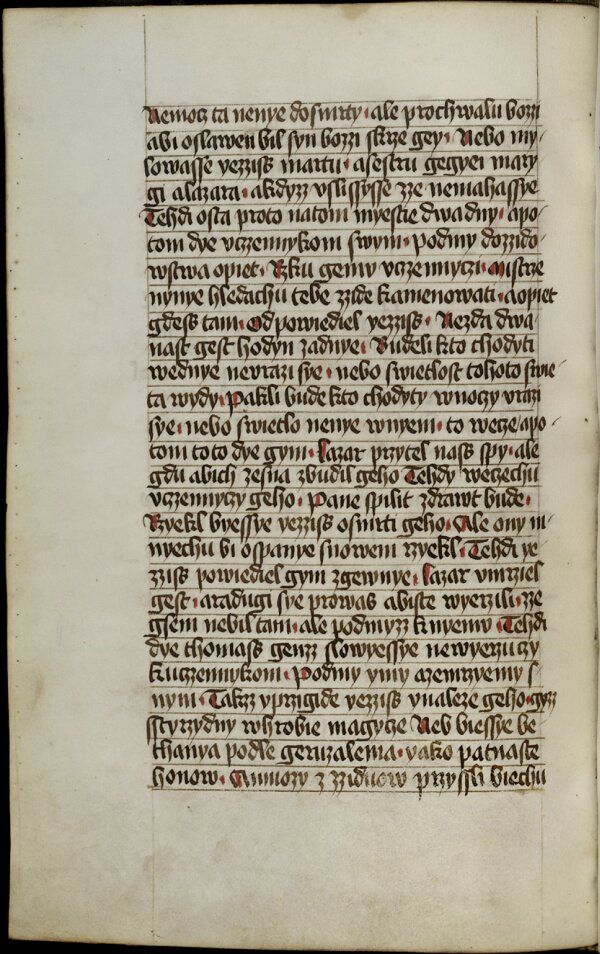 Nemocz ta nenye dosmrty · ale prochwalu bozzi
abi oslawen bil syn bozzi skrze gey · Nebo my/
lowasse yezziss martu · asestru gegyei mary
gi alazara · akdyzz vslissysse zze nemahassye
Tehdi osta proto natom myestie dwadny · apo
tom dye vczennykom swym · podmy dozzido/
wstwa opiet · Rzku gemv vczennyczi · mistrze
nynye hledachu tebe zzide kamenowati · aopiet
gdess tam · Odpowiediel yezziss · Nezda dwa
nast gest hodyn zadnye · Budeli kto chodyti
wednye nevrazi sye · nebo swietlost tohoto swie
ta wydy · Pakli bude kto chodyty wnoczy vrazi
sye · nebo swietlo nenye wnyem · to wecze apo/
tom toto dye gym · lazar przytel nass spy · ale
gdu abich zesna zbudil geho Tehdy weczechu
vczennyczy geho · Pane spilit zdrawt bude ·
Rzyekl byessye yezziss osmrti geho · Ale ony m/
nyechu bi ospanye snowem rzyekl · Tehdi ye
zziss powiediel gym zgewnye · lazar vmrziel
gest · aradugi sye prowas abiste wyerzili · zze
gsem nebil tam · ale podmyzz knyemv · Tehdi
dye thomass genzz slowyessye newyerzuczy
kuczennykom · Podmy ymy azemrzyemy s
nym · Takzz yprzigide yezziss vnaleze geho · gyzz
sstyrzydny whrobie magycze Neb biessye be
thanya podle geruzalema · yako patnaste
honow · Amnozy z zziduow przyssli biechu